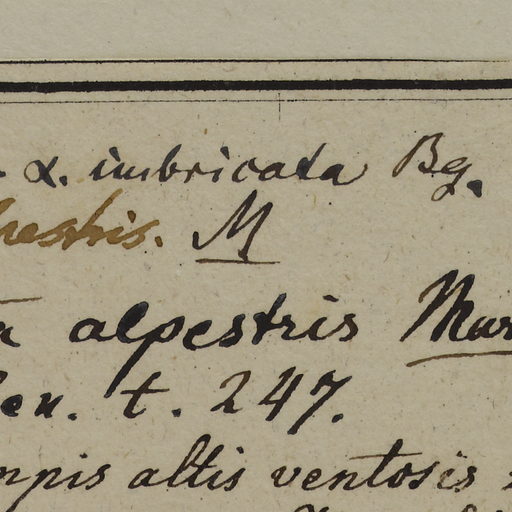 α. imbricata Bg.
pestris. M
alpestris Mur
en. t. 247.
mpis altis ventosis